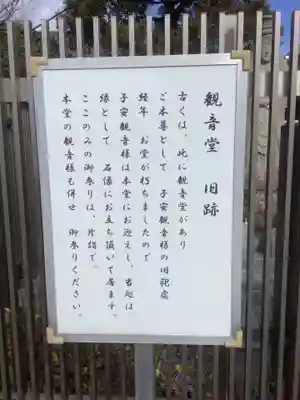 観音堂 旧跡
古くは、此に観音堂があり
ご本尊として 子安観音様の旧祀処
経年 お堂が朽ちましたので
子安観音様は本堂にお迎えし、当処は
縁として 石像にお立ち頂いて居ます。
ここのみの御参りは、片詣で。
本堂の観音様も併せ 御参りください。